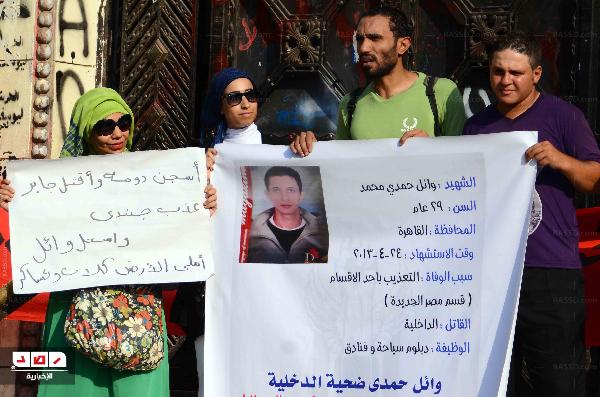 أسجن دومه وأقتل جابر
عذب جندى
واسحل وائل
أهلى الشهيد :وائل حمدي محمد
السن : ٢٩ عام
المحافظة : القاهرة
وقت الاستشهاد :٢٤-٤-٢٠١٣
سبب الوفاة : التعذيب باحد الاقسام
( قسم مصر الجديدة )
القاتل : الداخلية
الوظيفة : دبلوم سياحة و فنادق
وائل حمدى ضحية الدخلية
رصد
الإخبارية